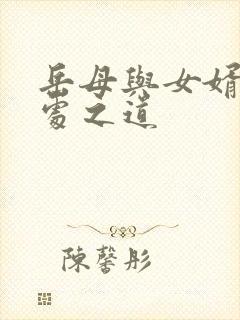 岳母與女婿
處之道
陳馨彤